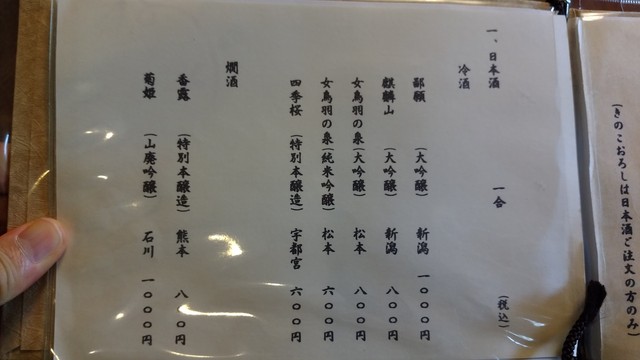 一、日本酒 一合 (税込)
冷酒
鄙願 (大吟醸) 新潟 一〇〇〇円
麒麟山 (大吟醸) 新潟 八〇〇円
女鳥羽の泉(大吟醸) 松本 八〇〇円
女鳥羽の泉(純米吟醸) 松本 六〇〇円
四季桜 (特別本醸造) 宇都宮 六〇〇円
燗酒
香露 (特別本醸造) 熊本 八〇〇円
菊姫 (山廃吟醸) 石川 一〇〇〇円
(きのこおろしは日本酒ご注文の方のみ)